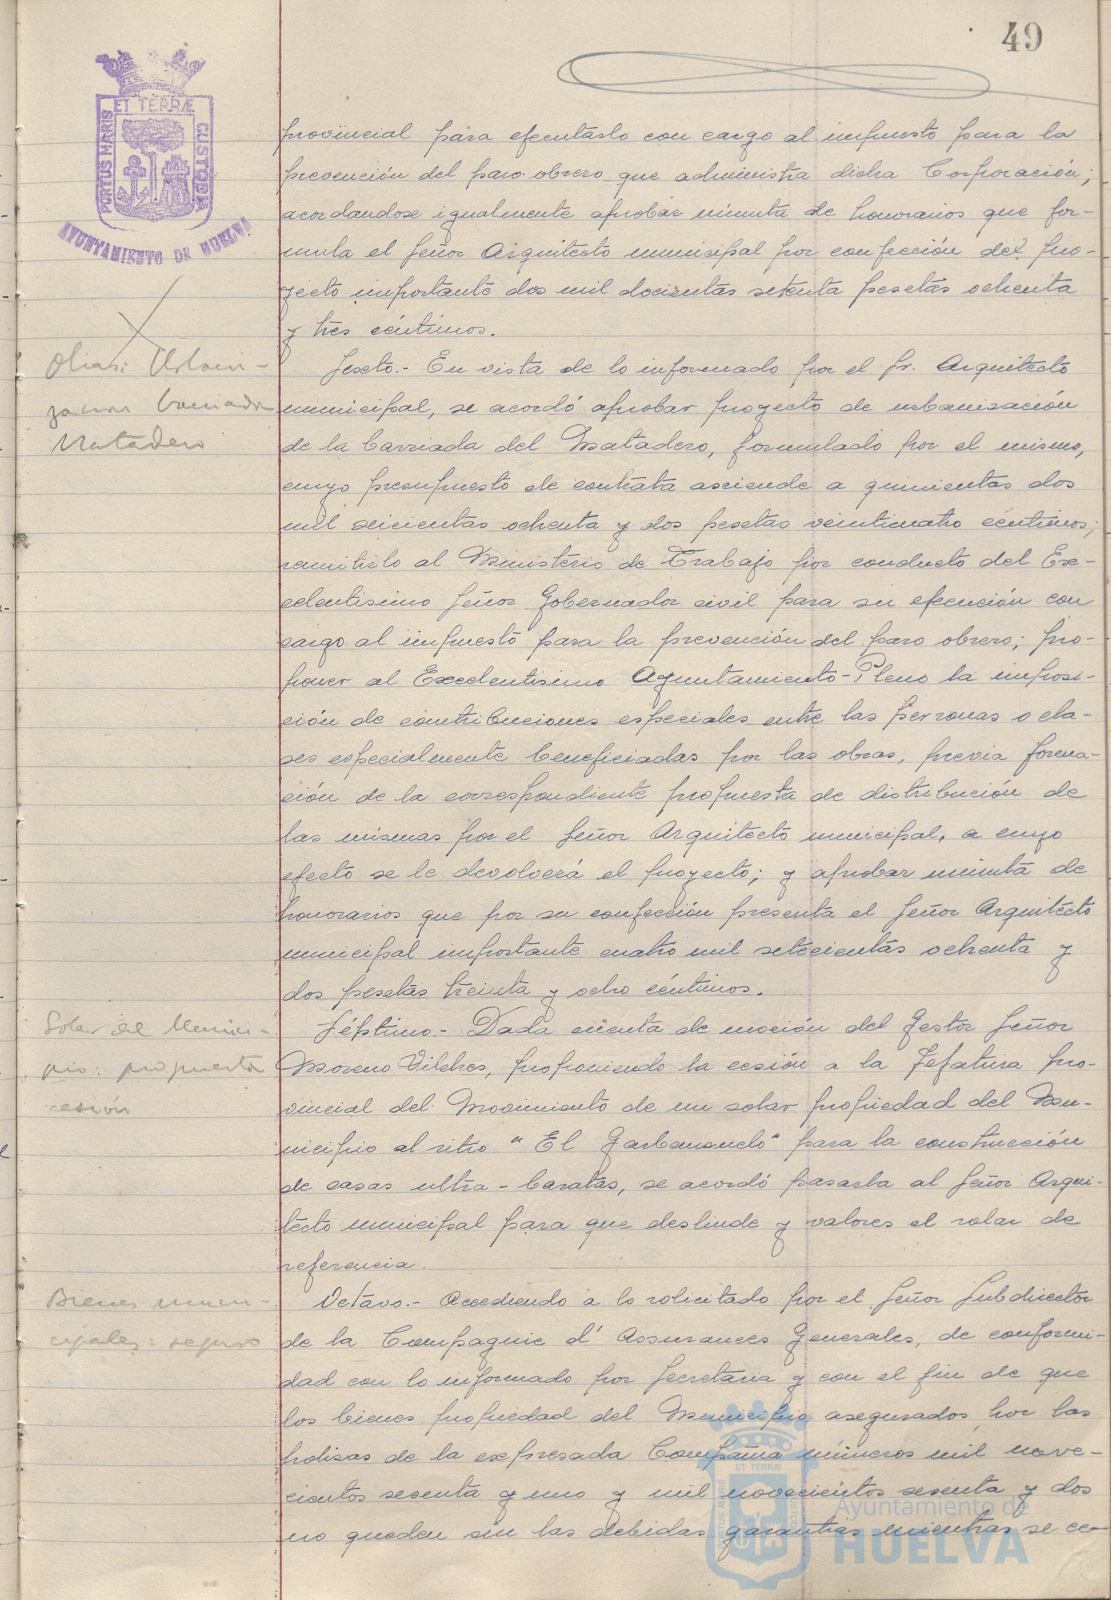 49
PORTUS MARIS ET TERRÆ CUSTODIA
AYUNTAMIENTO DE HUELVA
provincial para ejecutarlo con cargo al impuesto para la
prevención del paro obrero que administra dicha Corporación;
acordandose igualmente aprobar minuta de honorarios que for-
mula el Señor Arquitecto municipal por confección del pro-
yecto importante dos mil docientas setenta pesetas ochenta
y tres céntimos.
Obras: Urbani-
zacion barriada
Matadero
Sexto.- En vista de lo informado por el Sr. Arquitecto
municipal, se acordó aprobar proyecto de urbanización
de la barriada del Matadero, formulado por el mismo,
cuyo presupuesto de contrata asciende a quinientas dos
mil seicientas ochenta y dos pesetas veinticuatro céntimos;
remitirlo al Ministerio de Trabajo por conducto del Ex-
celentisimo Señor Gobernador civil para su ejecución con
cargo al impuesto para la prevención del paro obrero; pro-
poner al Excelentisimo Ayuntamiento-Pleno la imposi-
ción de contribuciones especiales entre las personas o cla-
ses especialmente beneficiadas por las obras, previa forma-
ción de la correspondiente propuesta de distribución de
las mismas por el Señor Arquitecto municipal, a cuyo
efecto se le devolverá el proyecto; y aprobar minuta de
honorarios que por su confección presenta el Señor Arquitecto
municipal importante cuatro mil setecientas ochenta y
dos pesetas treinta y ocho céntimos.
Solar del Munici-
pio: propuesta
cesión
Séptimo.- Dada cuenta de moción del Gestor Señor
Moreno Vilches, proponiendo la cesión a la Jefatura pro-
vincial del Movimiento de un solar propiedad del Mu-
nicipio al sitio "El Garbanzuelo" para la construcción
de casas ultra-baratas, se acordó pasarla al Señor Arqui-
tecto municipal para que deslinde y valores el solar de
referencia.
Bienes muni-
cipales: seguro
Octavo.- Accediendo a lo solicitado por el Señor Subdirector
de la Compagnie d' Assurances Generales, de conformi-
dad con lo informado por Secretaria y con el fin de que
los bienes propiedad del Municipio asegurados por las
polizas de la expresada Compañia números mil nove-
cientos sesenta y uno y mil novecientos sesenta y dos
no queden sin las debidas garantias mientras se ce-
Ayuntamiento de
HUELVA